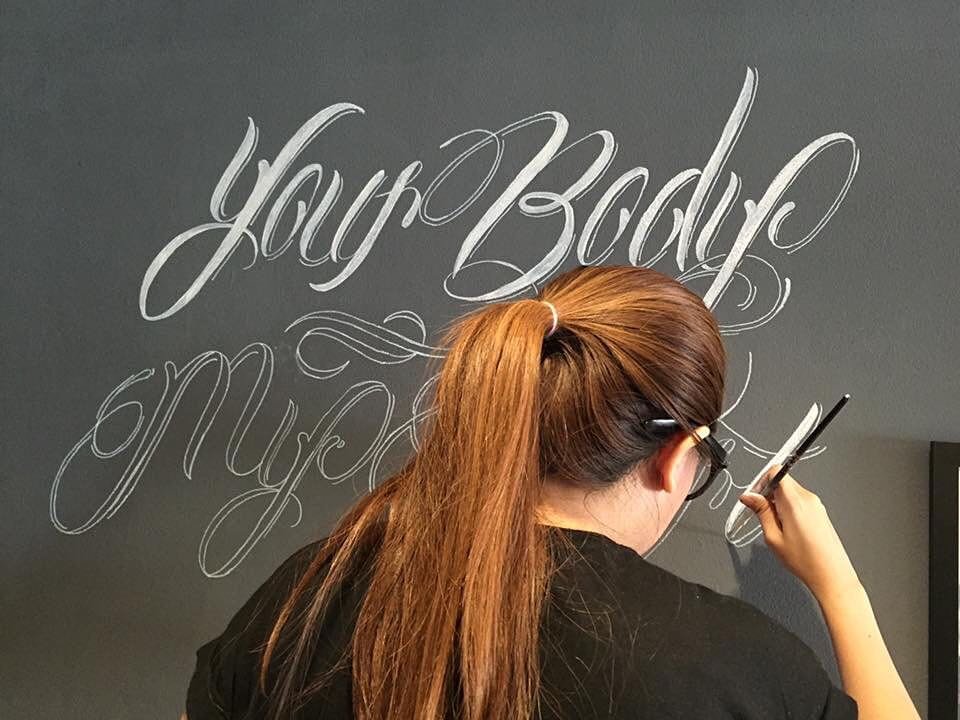 Your Body
My